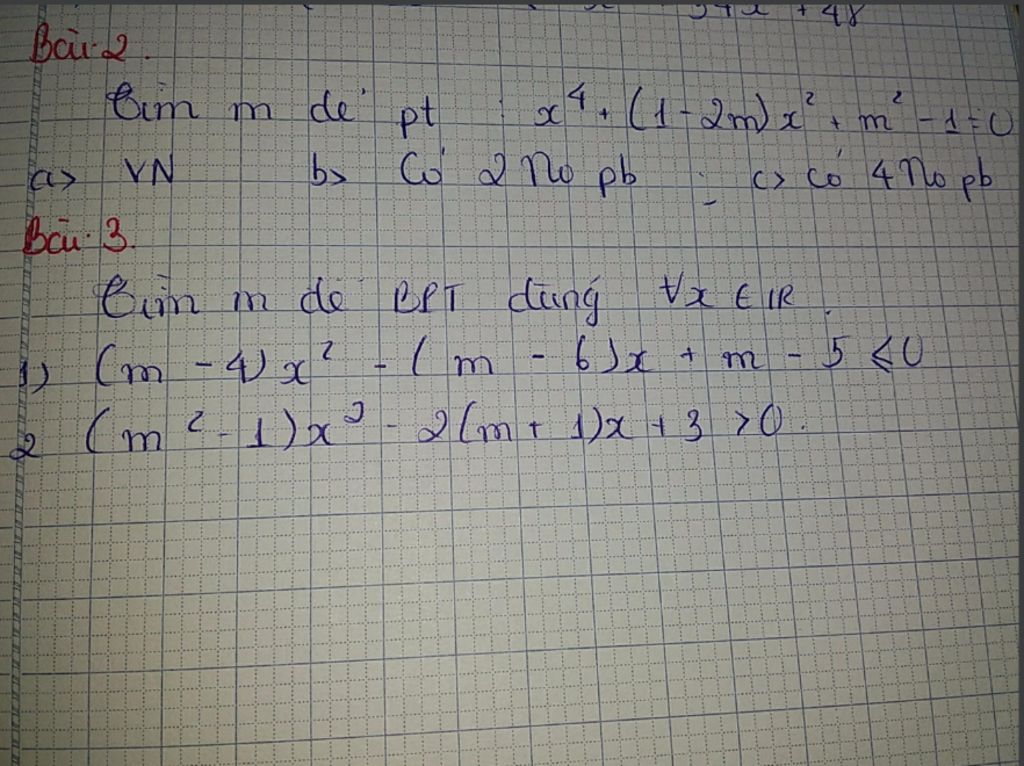 + 48
Bài 2.
Tìm m để pt x⁴ + (1 - 2m)x² + m² - 1 = 0
a> VN b> Có 2 No pb ; c> có 4 No pb
Bài 3.
Tìm m để BPT đúng ∀x ∈ IR.
1) (m - 4)x² - (m - 6)x + m - 5 ≤ 0
2 (m² - 1)x² - 2(m + 1)x + 3 > 0.